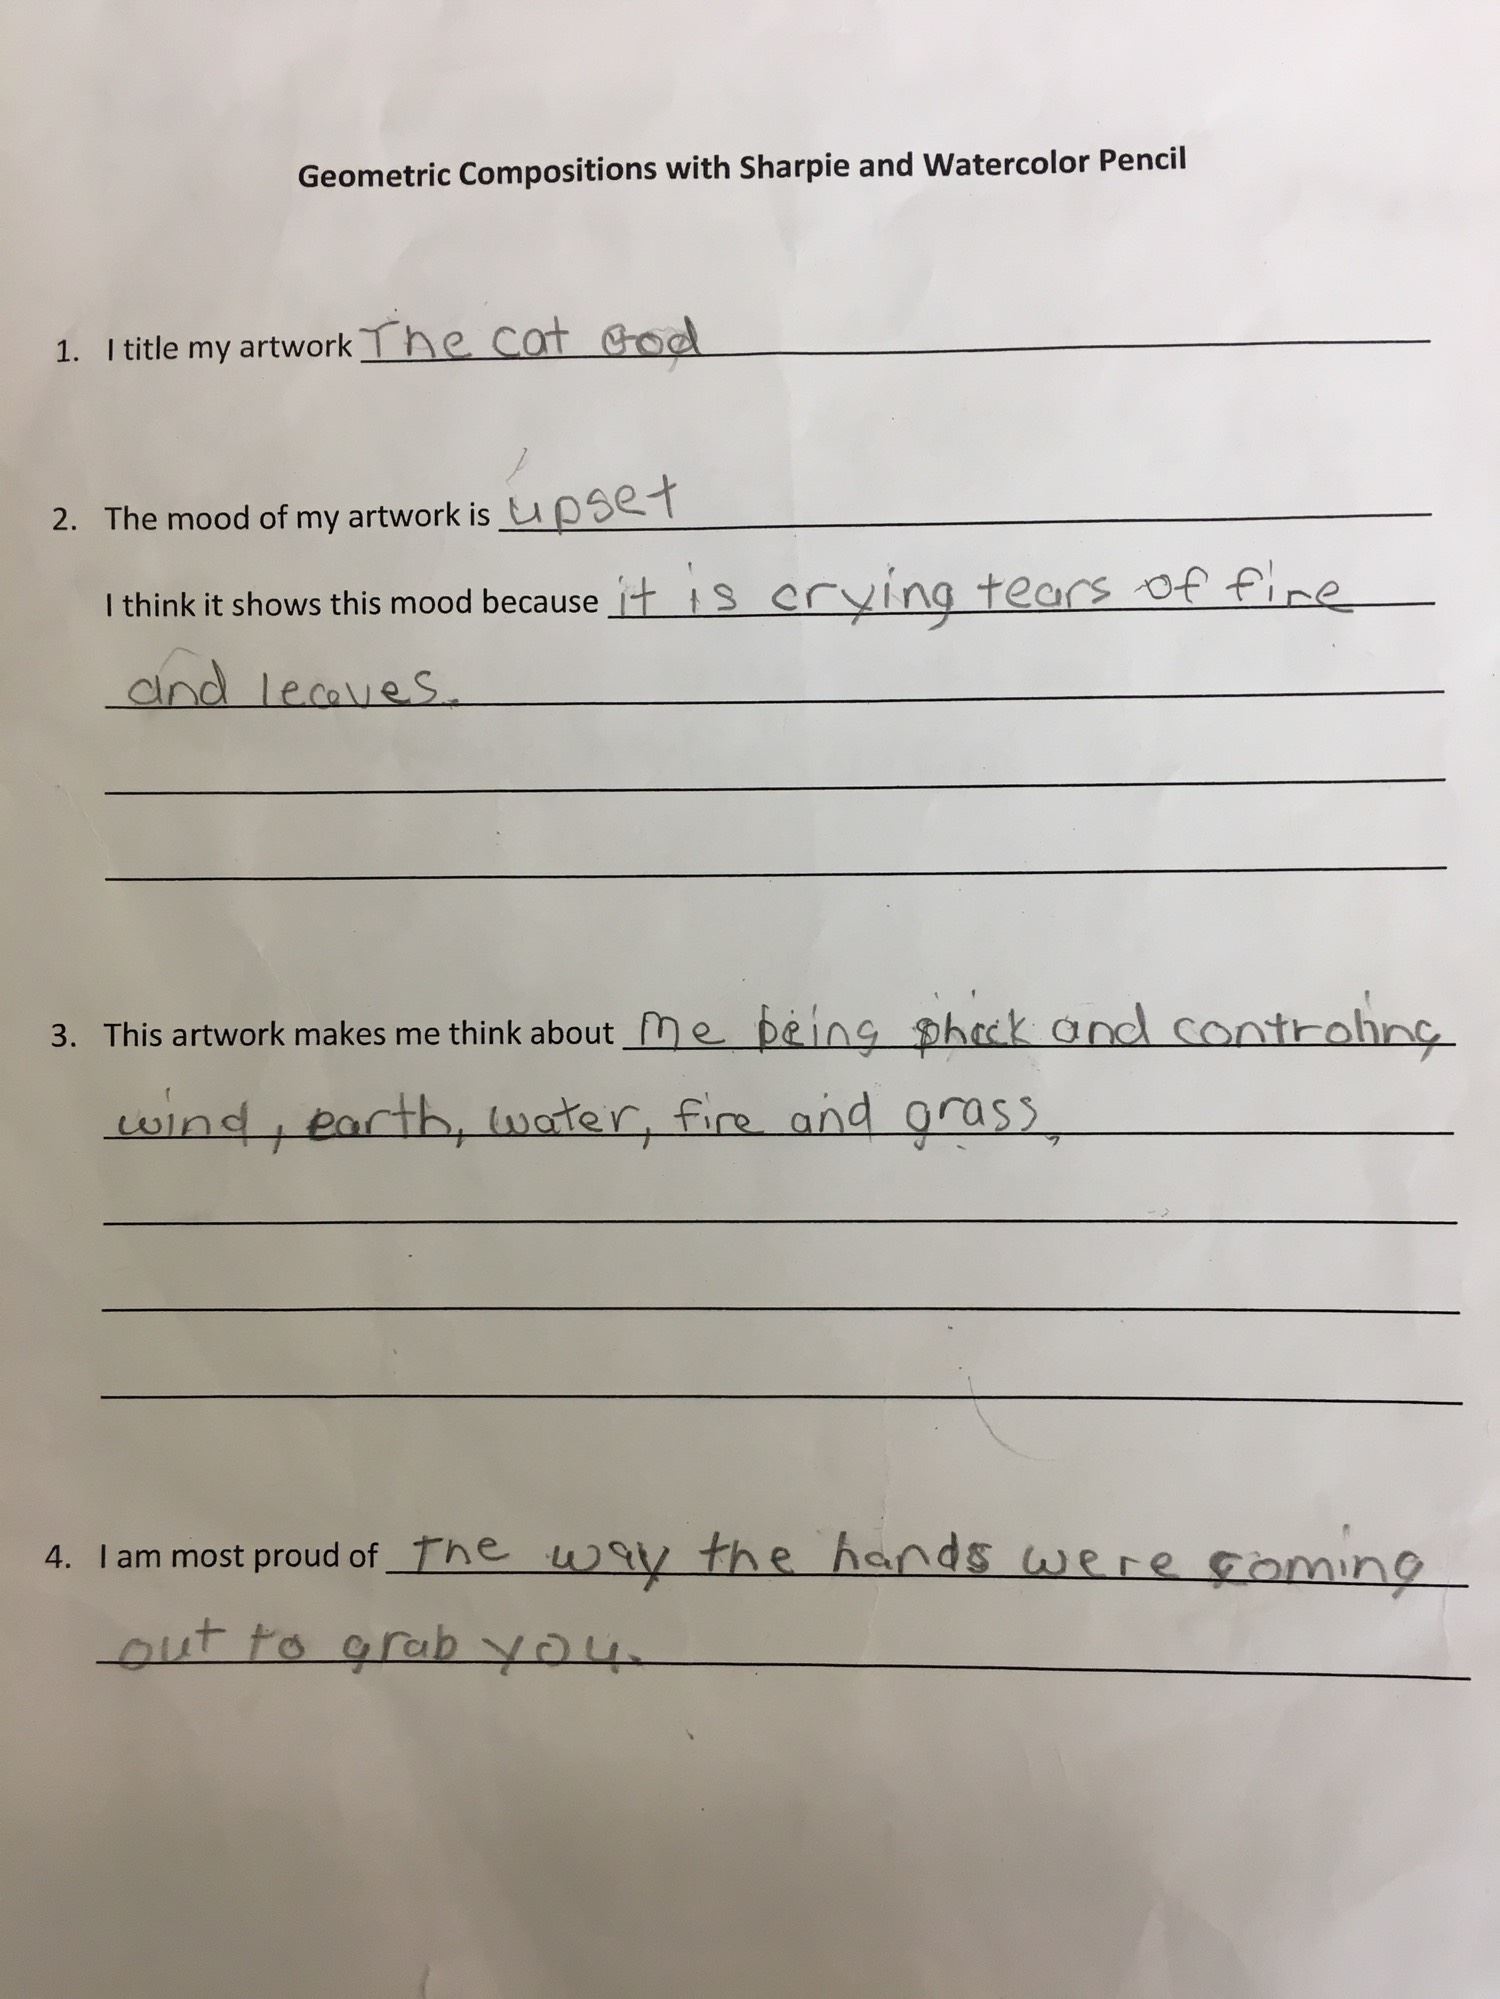 Geometric Compositions with Sharpie and Watercolor Pencil
1. I title my artwork The cat God
2. The mood of my artwork is upset
I think it shows this mood because it is crying tears of fire
and leaves.
3. This artwork makes me think about me being and controling
wind, earth, water, fire and grass,
4. I am most proud of The way the hands were coming
out to grab you.